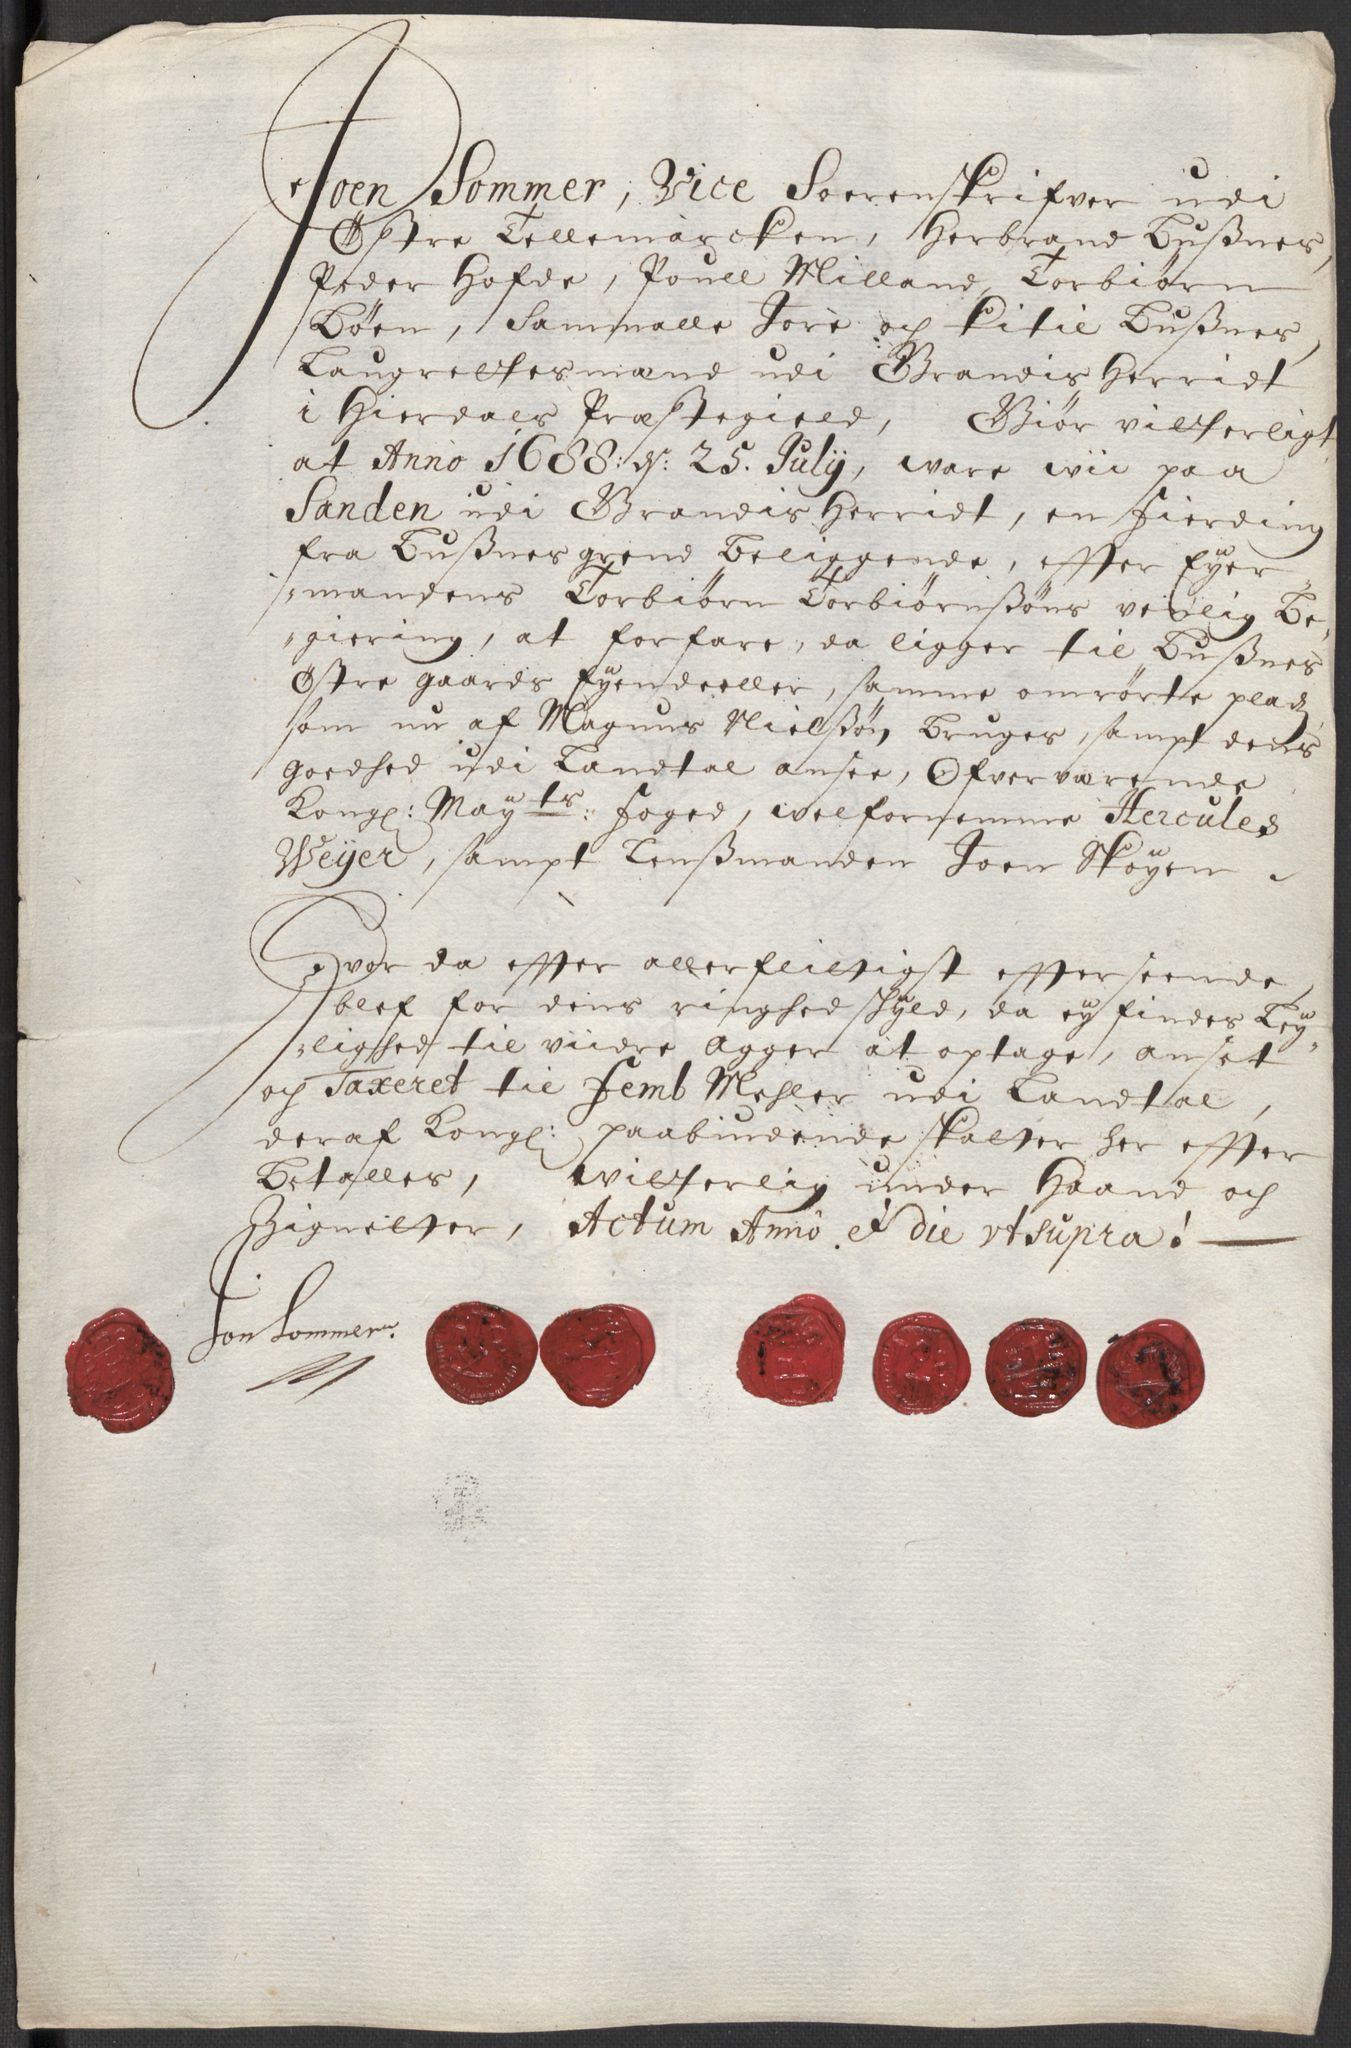 Joen Sommer, Vice Soerenskrifver udi
Østre Tellemarcken, Herbrand Bußnes,
Peder Hofde, Pouell Milland, Torbiørn
Bøen, Sammalle Tore och Kitil Bußnes,
Laugrettesmænd udi Brandis Herridt
i Hierdals Præstegield, Giør vitterligt
at Anno 1688: d: 25. July, ware wii paa
Sanden udi Brandis Herridt, en fierding
fra Bußnesgrend beliggende, effter Eyer
=mandens Torbiørn Torbiørnßøns venlig Be=
=giering, at forfare, da ligger til Bußnes
Østre gaards Eyendeeller, samme omrørte plads
som nu af Magnus Nielßøn bruges, sampt dens
goedhed udi Landtal ansee, Ofverværende
Kongl: Mayts: foged, welfornemme Hercules
Weyer, sampt Lenßmanden Joen Skøyen
Hvor da effter allerflittigst effterseende,
blef for dens ringhed skyld, da ey findes Ley=
=lighed til viidre Agger at optage, anset
och Taxeret til femb Mehler udi Landtal,
deraf Kongl: paabiudende skatter her effter
betalles, witterlig under Haand och
Zignetter, Actum Anno & die ut supra!
Jon Sommer